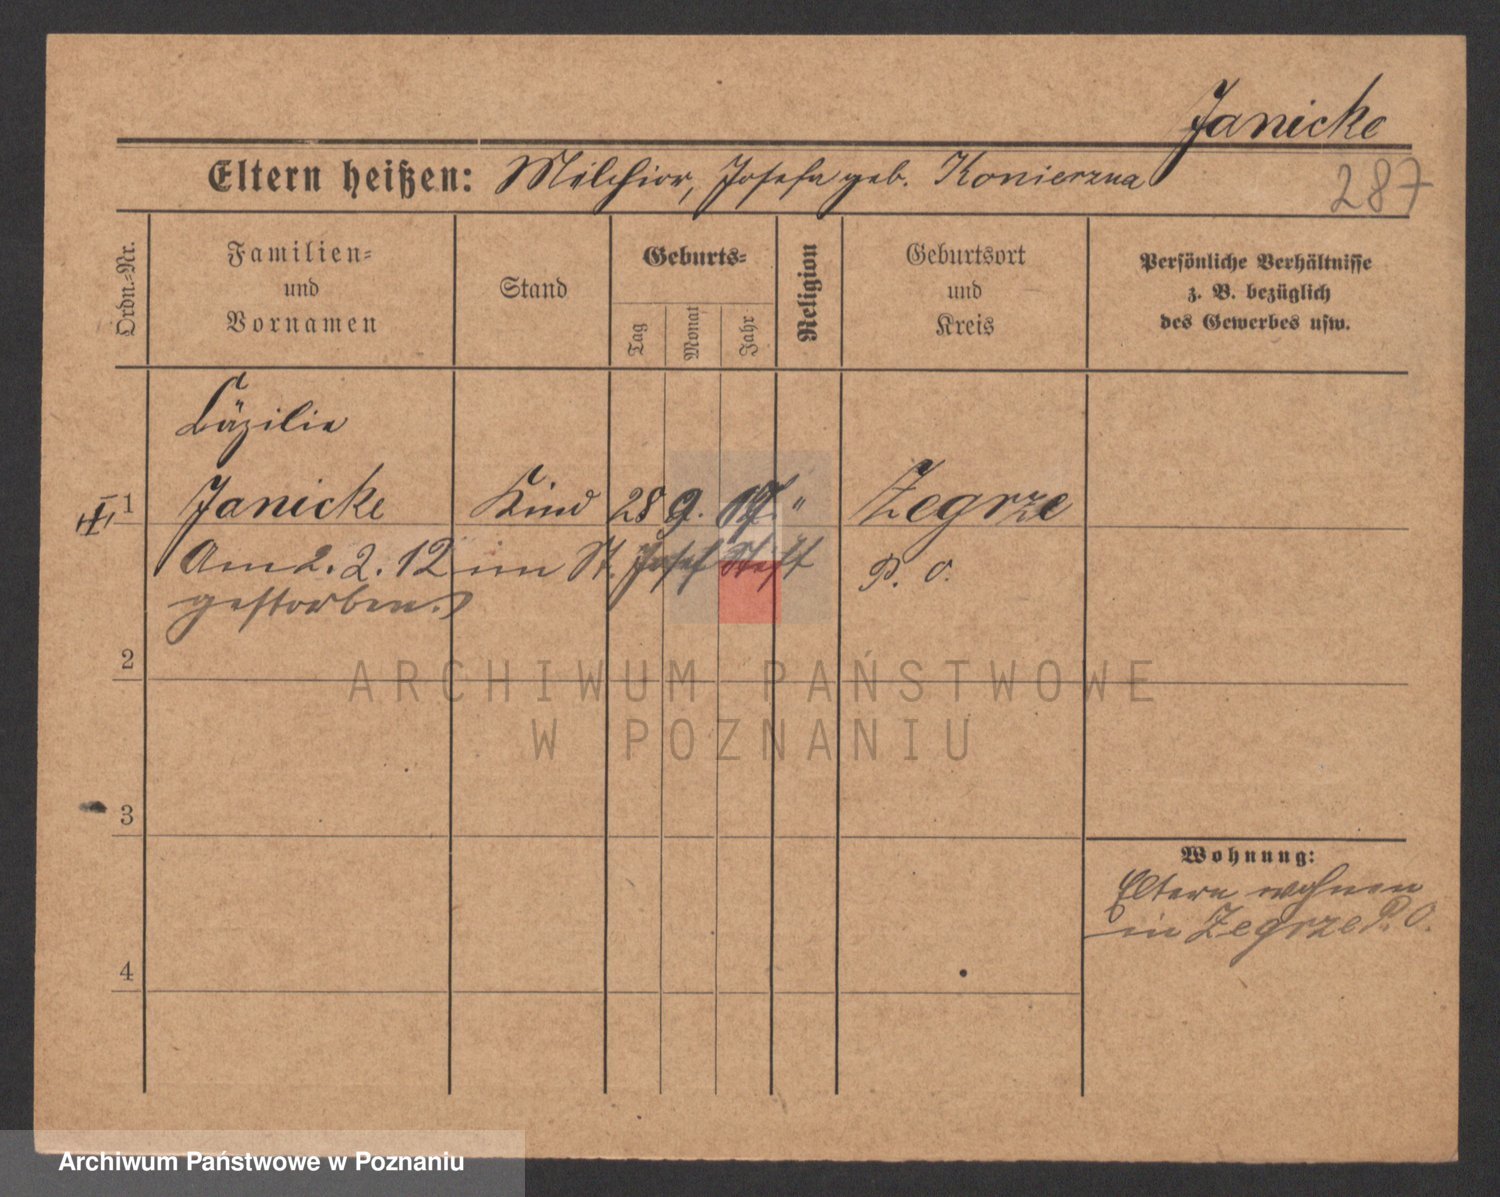 Janicke
Eltern heißen: Melchior, Josefa geb. Konierzna
287
Ordn.=Nr.
Familien=
und
Vornamen
Stand
Geburts=
Tag
Monat
Jahr
Religion
Geburtsort
und
Kreis
Persönliche Verhältnisse
z. B. bezüglich
des Gewerbes usw.
Cäzilie
1 Janicke Kind 28 9. " Zegrze
Am 2. 2. 12 im St. Josef Stift P. O.
gestorben.
2
3
4
Wohnung:
Eltern wohnen
in Zegrze P. O.
ARCHIWUM PAŃSTWOWE
W POZNANIU
Archiwum Państwowe w Poznaniu